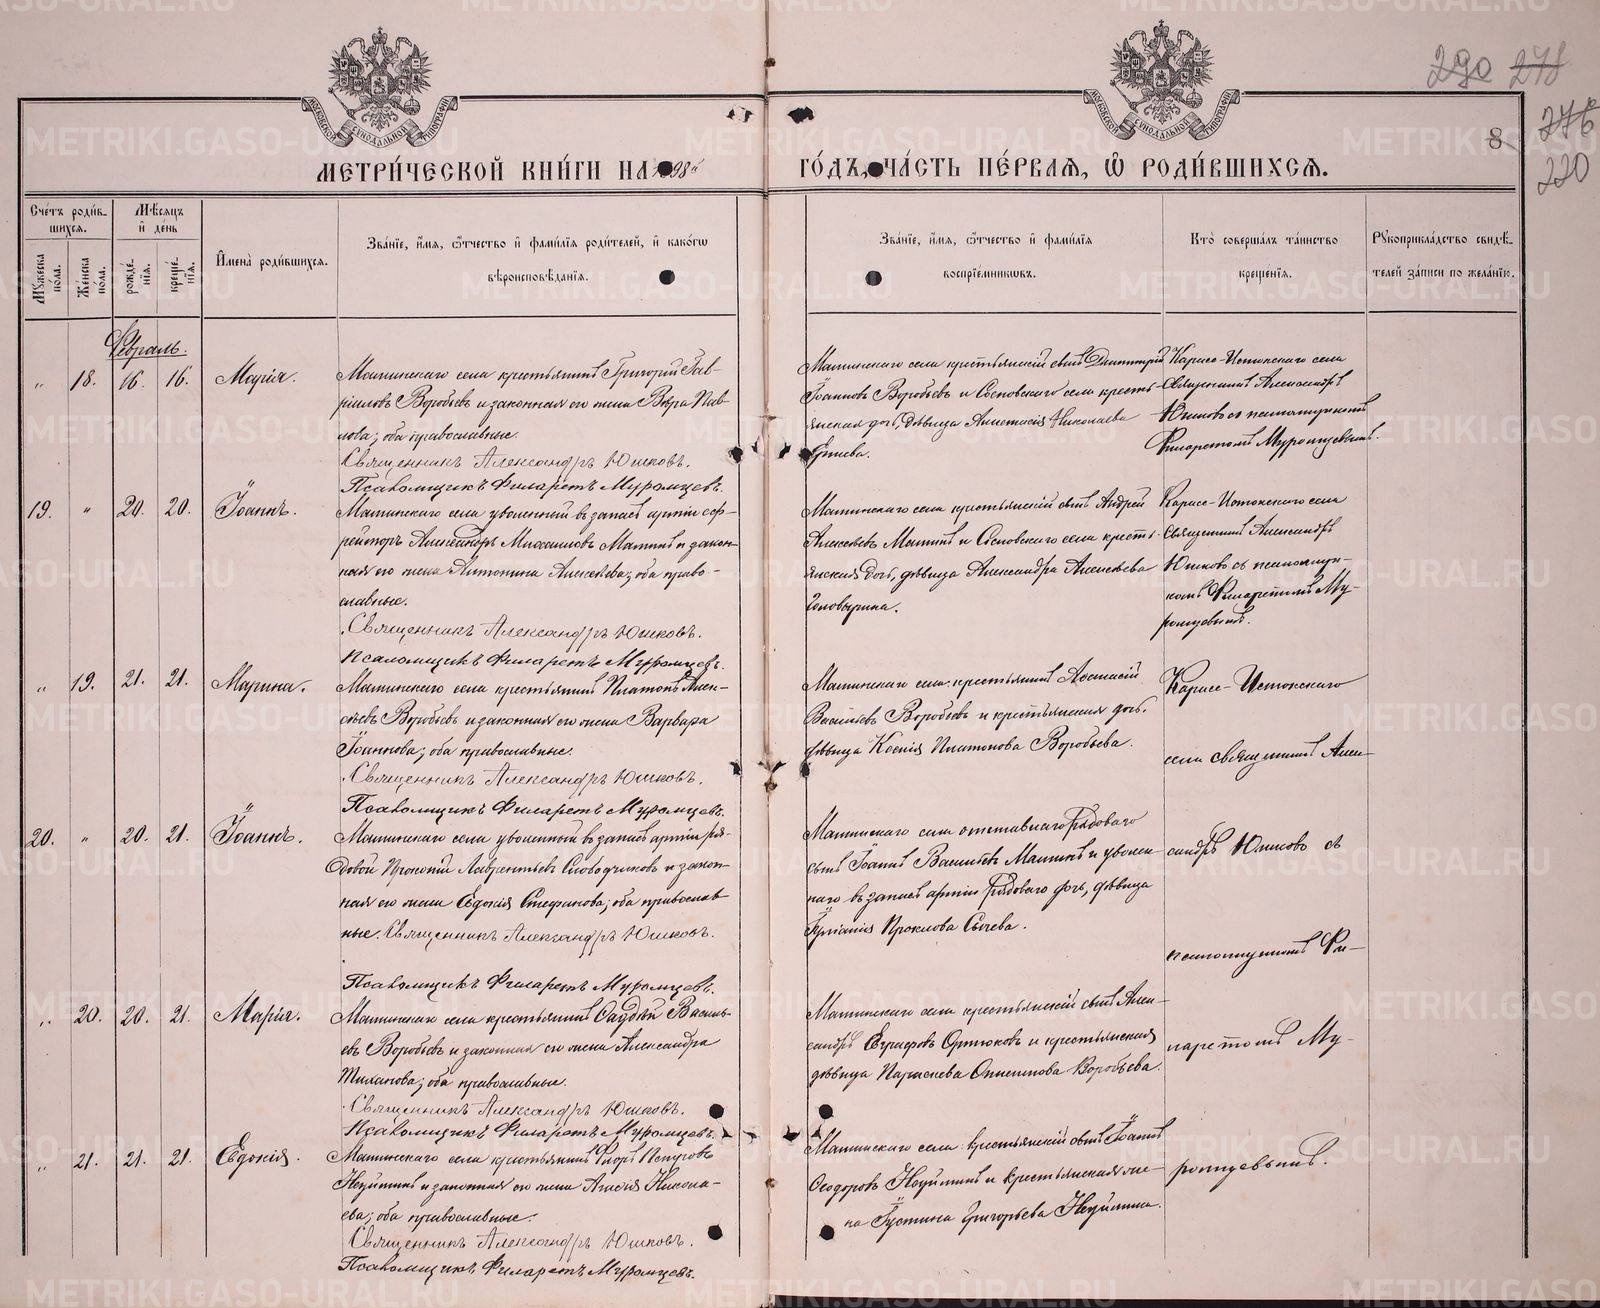 290 278
276
220
8
МЕТРИ́ЧЕСКОЙ КНИ́ГИ НА 1898й
ГО́ДЪ, ЧА́СТЬ ПЕ́РВАЯ, Ѡ РОДИ́ВШИХСЯ.
Сче́тъ роди́в-
шихся.
Мѣ́сяцъ
и҆ де́нь
Му́жеска
по́ла.
Же́нска
по́ла.
рожде́-
нїя.
креще́-
нїя.
И҆мена̀ роди́вшихся.
Зва́нїе, и҆́мя, ѻ҆́тчество и҆ фами́лїя роди́телей, и҆ како́гѡ
вѣроисповѣ́данїя.
Зва́нїе, и҆́мя, ѻ҆́тчество и҆ фами́лїя
воспрїе́мниковъ.
Кто̀ соверша́лъ та́инство
креще́нїя.
Рукоприкла́дство свидѣ́-
телей за́писи по жела́нїю.
Февраль.
„ 18. 16. 16. Марія.
Мамынскаго села крестьянинъ Григорій Гав-
ріиловъ Воробьевъ и законная его жена Вѣра Пав-
лова; оба православные.
Священникъ Александръ Юшковъ.
Псаломщикъ Филаретъ Муромцевъ.
Мамынскаго села крестьянскій сынъ Димитрій
Іоанновъ Воробьевъ и Сосновскаго села кресть-
янская дочь, дѣвица Анастасія Николаева
Карасе-Истокскаго села
Священникъ Александръ
Юшковъ съ псаломщикомъ
Филаретомъ Муромцевымъ.
19. „ 20. 20. Іоаннъ.
Мамынскаго села уволенный въ запасъ арміи еф-
рейторъ Александръ Михаиловъ Маминъ и закон-
ная его жена Антонина Алексѣева; оба право-
славные.
Священникъ Александръ Юшковъ.
Псаломщикъ Филаретъ Муромцевъ.
Мамынскаго села крестьянскій сынъ Андрей
Алексѣевъ Маминъ и Сосновскаго села кресть-
янская дочь, дѣвица Александра Алексѣева
Головырина.
Карасе-Истокскаго села
Священникъ Александръ
Юшковъ съ псаломщи-
комъ Филаретомъ Му-
ромцевымъ.
„ 19. 21. 21. Марина.
Мамынскаго села крестьянинъ Платонъ Алек-
сѣевъ Воробьевъ и законная его жена Варвара
Іоаннова; оба православные.
Священникъ Александръ Юшковъ.
Псаломщикъ Филаретъ Муромцевъ.
Мамынскаго села крестьянинъ Аѳанасій
Васильевъ Воробьевъ и крестьянская дочь,
дѣвица Ксенія Платонова Воробьева.
Карасе-Истокскаго
села священникъ Алек-
20. „ 20. 21. Іоаннъ.
Мамынскаго села уволенный въ запасъ арміи ря-
довой Прокопій Лаврентьевъ Слободчиковъ и закон-
ная его жена Евдокія Стефанова; оба православ-
ные. Священникъ Александръ Юшковъ.
Псаломщикъ Филаретъ Муромцевъ.
Мамынскаго села отставнаго рядоваго
сынъ Іоаннъ Васильевъ Маминъ и уволен-
наго въ запасъ арміи рядоваго дочь, дѣвица
Іуліанія Проклова Сычева.
сандръ Юшковъ съ
псаломщикомъ Фи-
„ 20. 20. 21. Марія.
Мамынскаго села крестьянинъ Фаддей Василь-
евъ Воробьевъ и законная его жена Александра
Тиханова; оба православные.
Священникъ Александръ Юшковъ.
Псаломщикъ Филаретъ Муромцевъ.
Мамынскаго села крестьянскій сынъ Алек-
сандръ Евграфовъ Ортюковъ и крестьянская
дѣвица Параскева Воробьева.
ларетомъ Му-
„ 21. 21. 21. Евдокія.
Мамынскаго села крестьянинъ Флоръ Петровъ
Неуйминъ и законная его жена Агаѳія Никола-
ева; оба православные.
Священникъ Александръ Юшковъ.
Псаломщикъ Филаретъ Муромцевъ.
Мамынскаго села крестьянскій сынъ Іоаннъ
Ѳеодоровъ Неуйминъ и крестьянская же-
на Іустина Григорьева Неуймина.
ромцевымъ.
METRIKI.GASO-URAL.RU